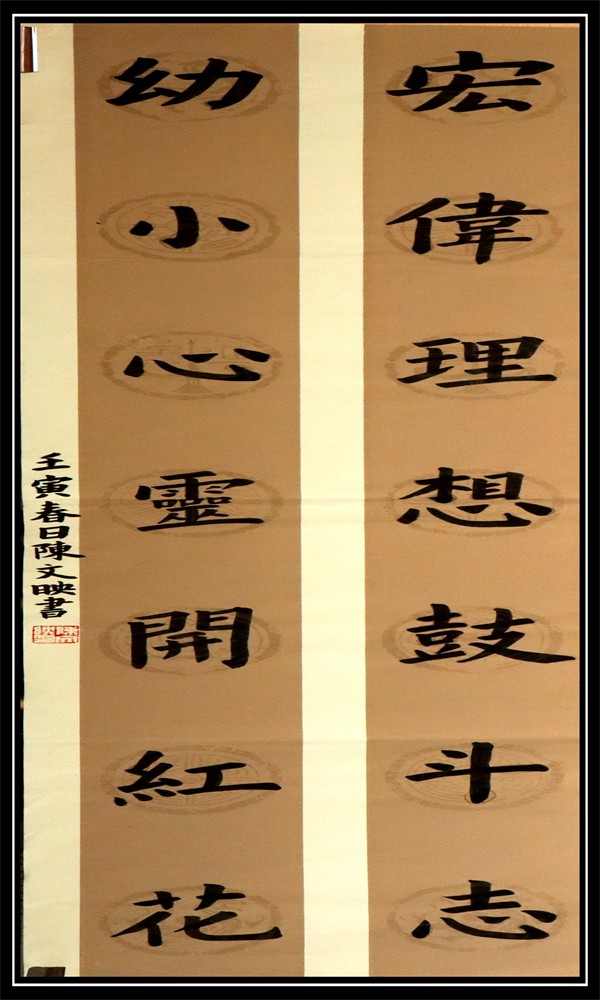 宏偉理想鼓斗志
幼小心靈開紅花
壬寅春日陳文映書